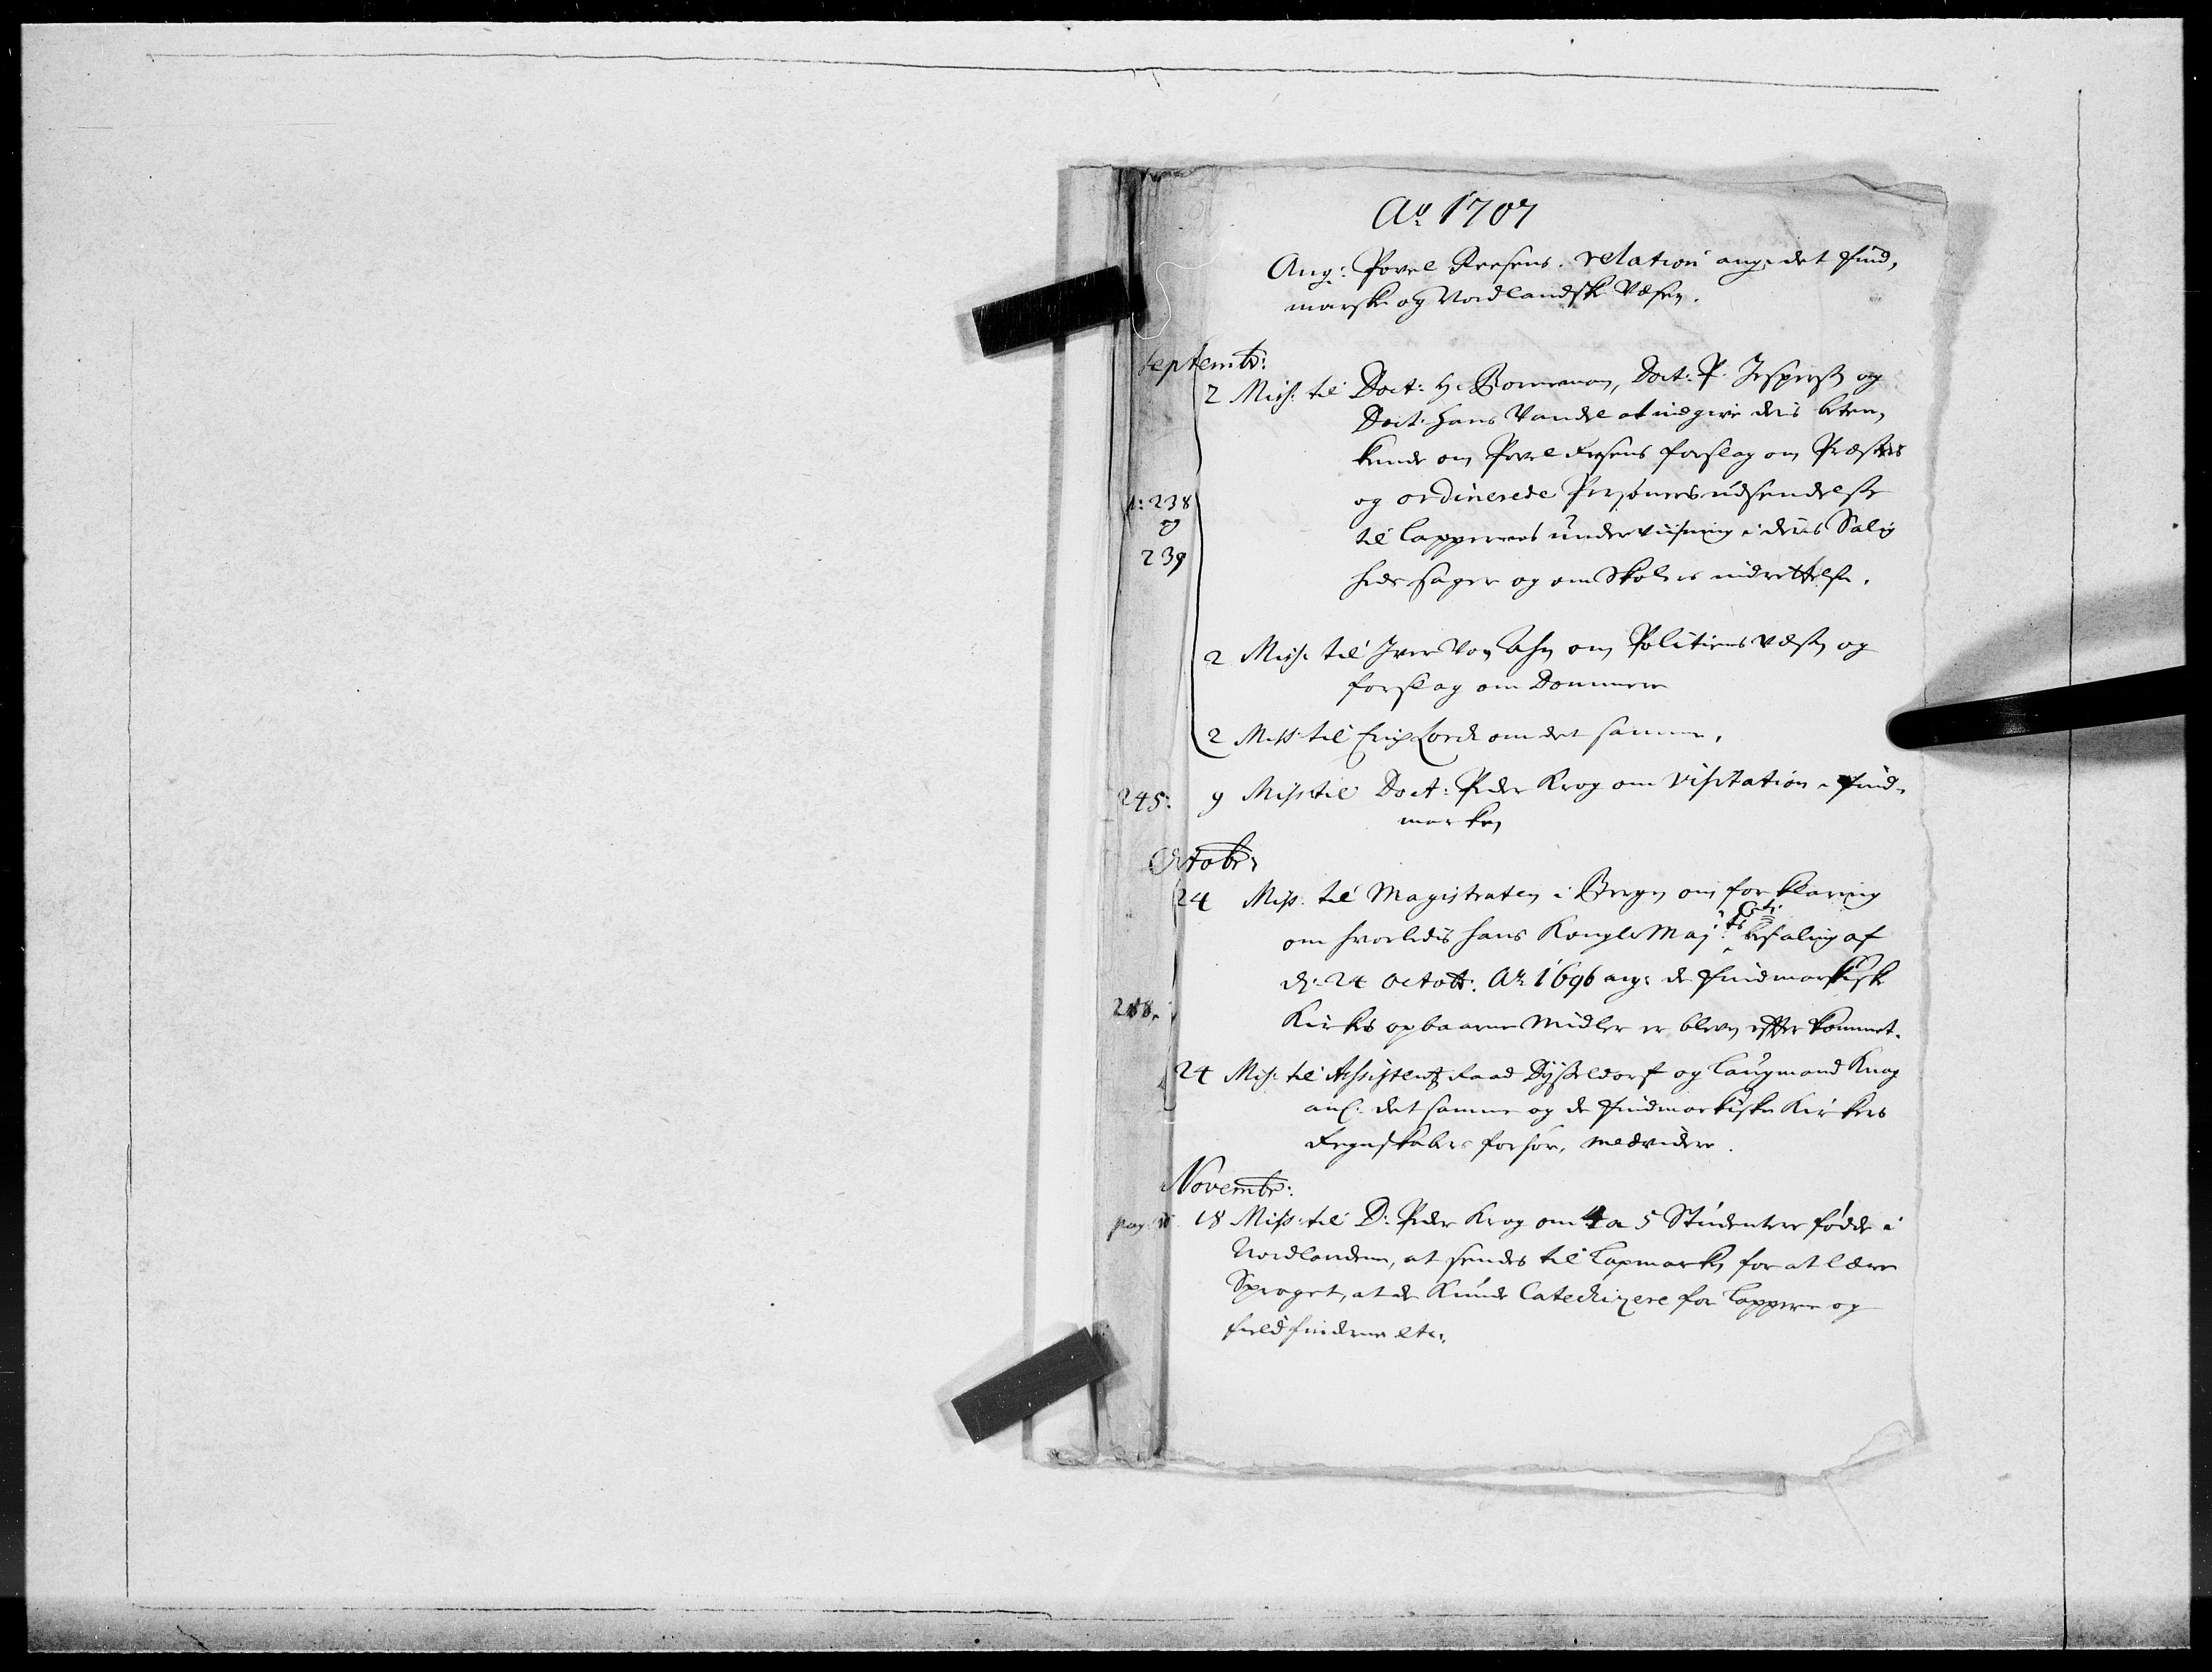 Ao 1707
Ang: Povel Resens relation ang: det Find,
marske og Nordlandske Væsen.
Septembr:
2 Miss: til Doct: H: Bornemann, Doct: P. Jespersen og
Doct: Hans Vandel at indgive deris beten,
kende om Povel Resens forslag om Præsters
og ordinerede Personers udsendelse
p: 238
og
239
til Lappernes underviisning i deris Salig
heds sager og om Skolers indrettelse.
2 Miss: til Iver Von Ahn om Politiens væsen og
forslag om Dommere
2 Miss: til Erich Lorch om det samme.
245. 9 Miss: til Doct: Peder Krog om Visitation i Find-
marken
Octobr:
24 Miss: til Magistraten i Bergen om forklaring
om hvorledis hans Kongl: Maj:ts befaling af
d: 24 Octob: Ao 1696 ang: de Findmarkiske
288.
Kirkers opbaarne Midler er bleven efterkommet.
24 Miss: til Assistentz Raad Dysseldorf og Laugmand Knag
anl: det samme og de Findmarkiske Kirkers
Regnskabers forhør, med videre.
Novembr:
pag: 18 Miss: til D: Peder Krog om 4 a 5 Studentere fødde i
Nordlandene, at sendes til Lapmarken for at lære
Sproget, at de kunde Catechizere for Lapperne og
field finderne etc.